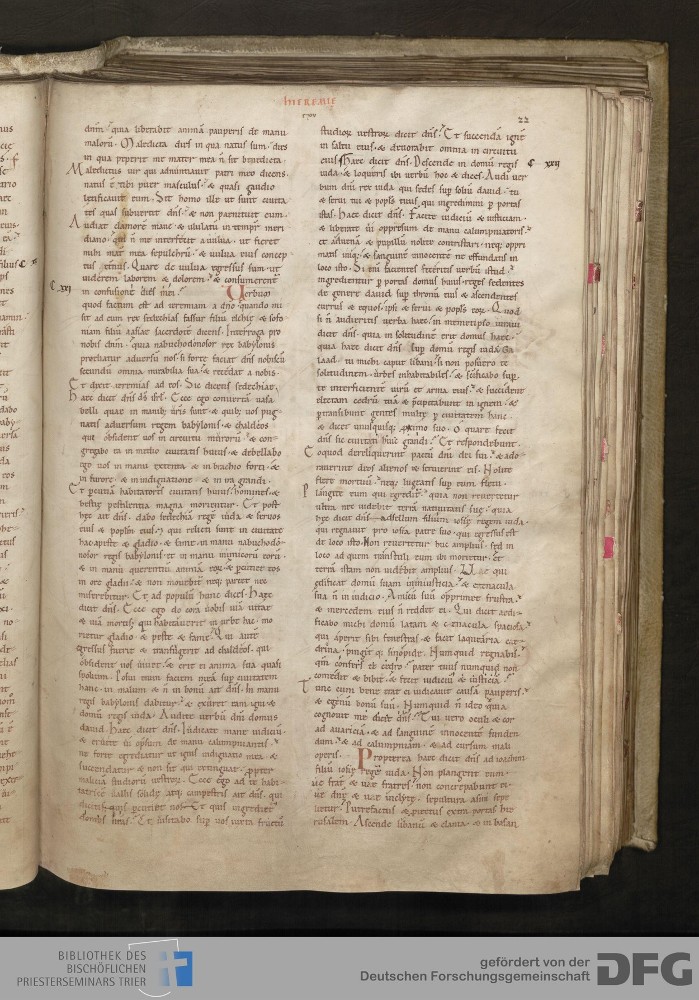 HIEREMIE
22
dnm. quia liberavit animā pauperis de manu
malorū. Maledicta dies in qua natus sum. dies
in qua peperit me mater mea ñ sit benedicta.
Maledictus vir qui adnuntiavit patri meo dicens.
natus ē tibi puer masculus. & quasi gaudio
letificavit eum. Sit homo ille ut sunt civita
tes quas subvertit dns. & non paenituit eum.
Audiat clamorē mane. & ululatū in tempr meri
diano. qui ñ me interfecit a vulva. ut fieret
mihi mat mea sepulchrū. & vulva eius concep
tus ēternus. Quare de vulva egressus sum. ut
viderem laborem & dolorem. & consumerent
C. xxi
in confusione dies mei. Verbum
quod factum est ad ieremiam a dno quando mi
sit ad eum rex sedechias fassur filiū elchie. & sofo
niam filiū aasiae sacerdotē dicens. Interroga pro
nobis dnm. quia nabuchodonosor rex babylonis
proeliatur adversū nos. si forte faciat dns nobiscū
secundū omnia mirabilia sua. & recedat a nobis.
Et dixit ieremias ad eos. Sic dicetis sedechiae.
Haec dicit dns ds isrl. Ecce ego convertā vasa
belli quae in manib; vris sunt. & quib; vos pug
natis adversum regem babylonis. & chaldeos
qui obsident vos in circuitu murorū. & con
gregabo ea in medio civitatis huius. & debellabo
ego vos in manu extenta. & in brachio forti. &
in furore. & in indignatione. & in ira grandi.
Et pcutiā habitatores civitatis huius. homines &
bestie pestilentia magna morientur. Et post
hec ait dns. dabo sedechiā regē iuda & servos
eius & poplm eius. & qui relicti sunt in civitate
hac a peste & gladio. & fame. in manu nabuchodo
nosor regis babylonis. et in manu inimicorū eorū.
& in manu querentiū animā eorū. & pcutiet eos
in ore gladii. & non movebit neq; parcet nec
miserebitur. Et ad populū hunc dices. Haec
dicit dns. Ecce ego do corā vobis viā vitae
& viā mortis. qui habitaverit in urbe hac. mo
rietur gladio & peste & fame. Qui autē
gressus fuerit & transfugerit ad chaldeos. qui
obsident vos. vivet. & erit ei anima sua quasi
spolium. Posui enim faciem meā sup civitatem
hanc. in malum & ñ in bonū ait dns. In manu
regis babylonis dabitur. & exuret eam igni. &
domui regis iuda. Audite verbū dni domus
david. Haec dicit dns. Iudicate mane iudiciū.
& eruite vi oppsum de manu calumpniantis.
ne forte egrediatur ut ignis indignatio mea. &
succendatur & non sit qui extinguat. propter
malicia studiorū vestrorū. Ecce ego ad te habi
tatricē vallis solidę atq; campestris ait dns. qui
dicitis quis pcutiet nos. Et quis ingredietur
domos nras. Et visitabo sup vos iuxta fructū
studiorū vestrorū dicit dns. Et succendā ignē
in saltu eius. & devorabit omnia in circuitu
eius. Haec dicit dns. Descende in domū regis
C xxii
iuda. & loqueris ibi verbū hoc & dices. Audi ver
bum dni rex iuda. qui sedes sup soliū david. tu
& servi tui & popls tuus. qui ingredimini p portas
istas. Haec dicit dns. Facite iudiciū & iusticiam.
& liberate vi oppressum de manu calumpniatoris.
et advenā & pupillū nolite contristari. neq; oppri
matis iniq; & sanguinē innocentē ne effundatis in
loco isto. Si eni facientes feceritis verbū istud.
ingredientur p portas domus huius. reges sedentes
de genere david sup thronū eius. & ascendentes
currus & equos. ipsi & servi & popls eorū. Quod
si ñ audieritis verba haec. in memetipso iuravi
dicit dns. quia in solitudinē erit domus haec.
quia haec dicit dns. sup domū regis iuda. Ga
laad. tu michi caput libani. si non posuero te
solitudinem. urbes inhabitabiles. & scificabo sup
te interficientē virū et arma eius. & succident
electam cedrū tuā & pcipitabunt in ignem. &
ptransibunt gentes multę p civitatem hanc.
& dicet unusquisq; pximo suo. Quare fecit
dns sic civitati huic grandi. Et respondebunt.
Eoquod dereliquerint pactū dni dei sui. & ado
raverint deos alienos & servierint eis. Nolite
flere mortuū. neq; lugeatis sup eum fletu.
Plangite eum qui egredit. quia non revertetur
ultra nec videbit terrā nativitatis suę. quia
hęc dicit dns. ad sellum filium iosię regem iuda.
qui regnavit pro iosia patre suo. qui egressus est
de loco isto. Non revertetur huc amplius. sed in
loco ad quem transtuli eum ibi morietur. et
terrā istam non videbit amplius. Vae qui
ędificat domū suam in iniusticia. & cenacula
sua ñ in iudicio. Amicū suū opprimet frustra.
& mercedem eius ñ reddet ei. Qui dicit aedi
ficabo michi domū latam & cenacula spaciosa.
qui aperit sibi fenestras & facit laquēria ced
drina. pingit q; sinopide. Numquid regnabis.
qm confers te cedro. pater tuus numquid non
comedit & bibit. & fecit iudiciū & iusticiā.
Tunc cum bene erat ei. iudicavit causā pauperis.
& egenū bonū suū. Numquid ñ ideo quia
cognovit me dicit dns. Tui vero oculi & cor
ad avaricia. & ad sanguinē innocentē funden
dum. & ad calumpniam. & ad cursum mali
operis. Propterea haec dicit dns ad ioachim
filiū iosię regē iuda. Non plangent eum.
ve frat & vae frates. non concrepabunt ei.
ve dne & vae inclyte. sepultura asini sepe
lietur. Putrefactus & piectus extra portas hie
rusalem. Ascende libanū & clama. & in basan
BIBLIOTHEK DES
BISCHÖFLICHEN
PRIESTERSEMINARS TRIER
gefördert von der
Deutschen Forschungsgemeinschaft
DFG